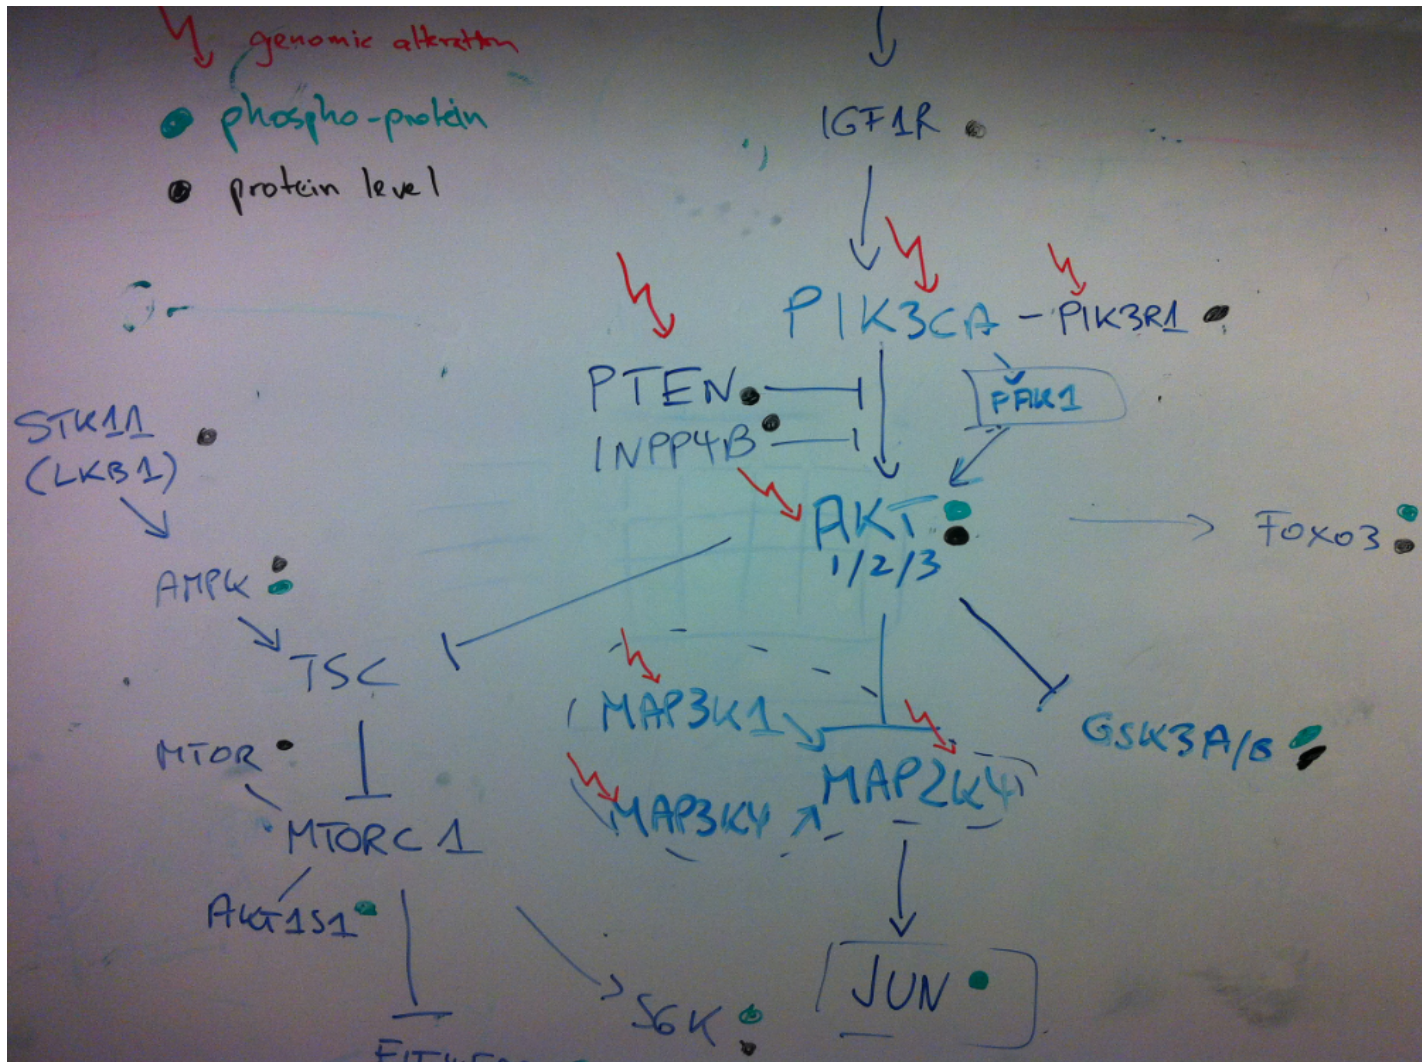 genomic alteration
phospho-protein
protein level
IGF1R
PIK3CA - PIK3R1
PTEN
INPP4B
STK11
(LKB1)
AKT
1/2/3
FOXO3
AMPK
TSC
MAP3K1
GSK3A/B
MTOR
MAP2K4
MAP3K4
MTORC1
AKT1S1
JUN
S6K